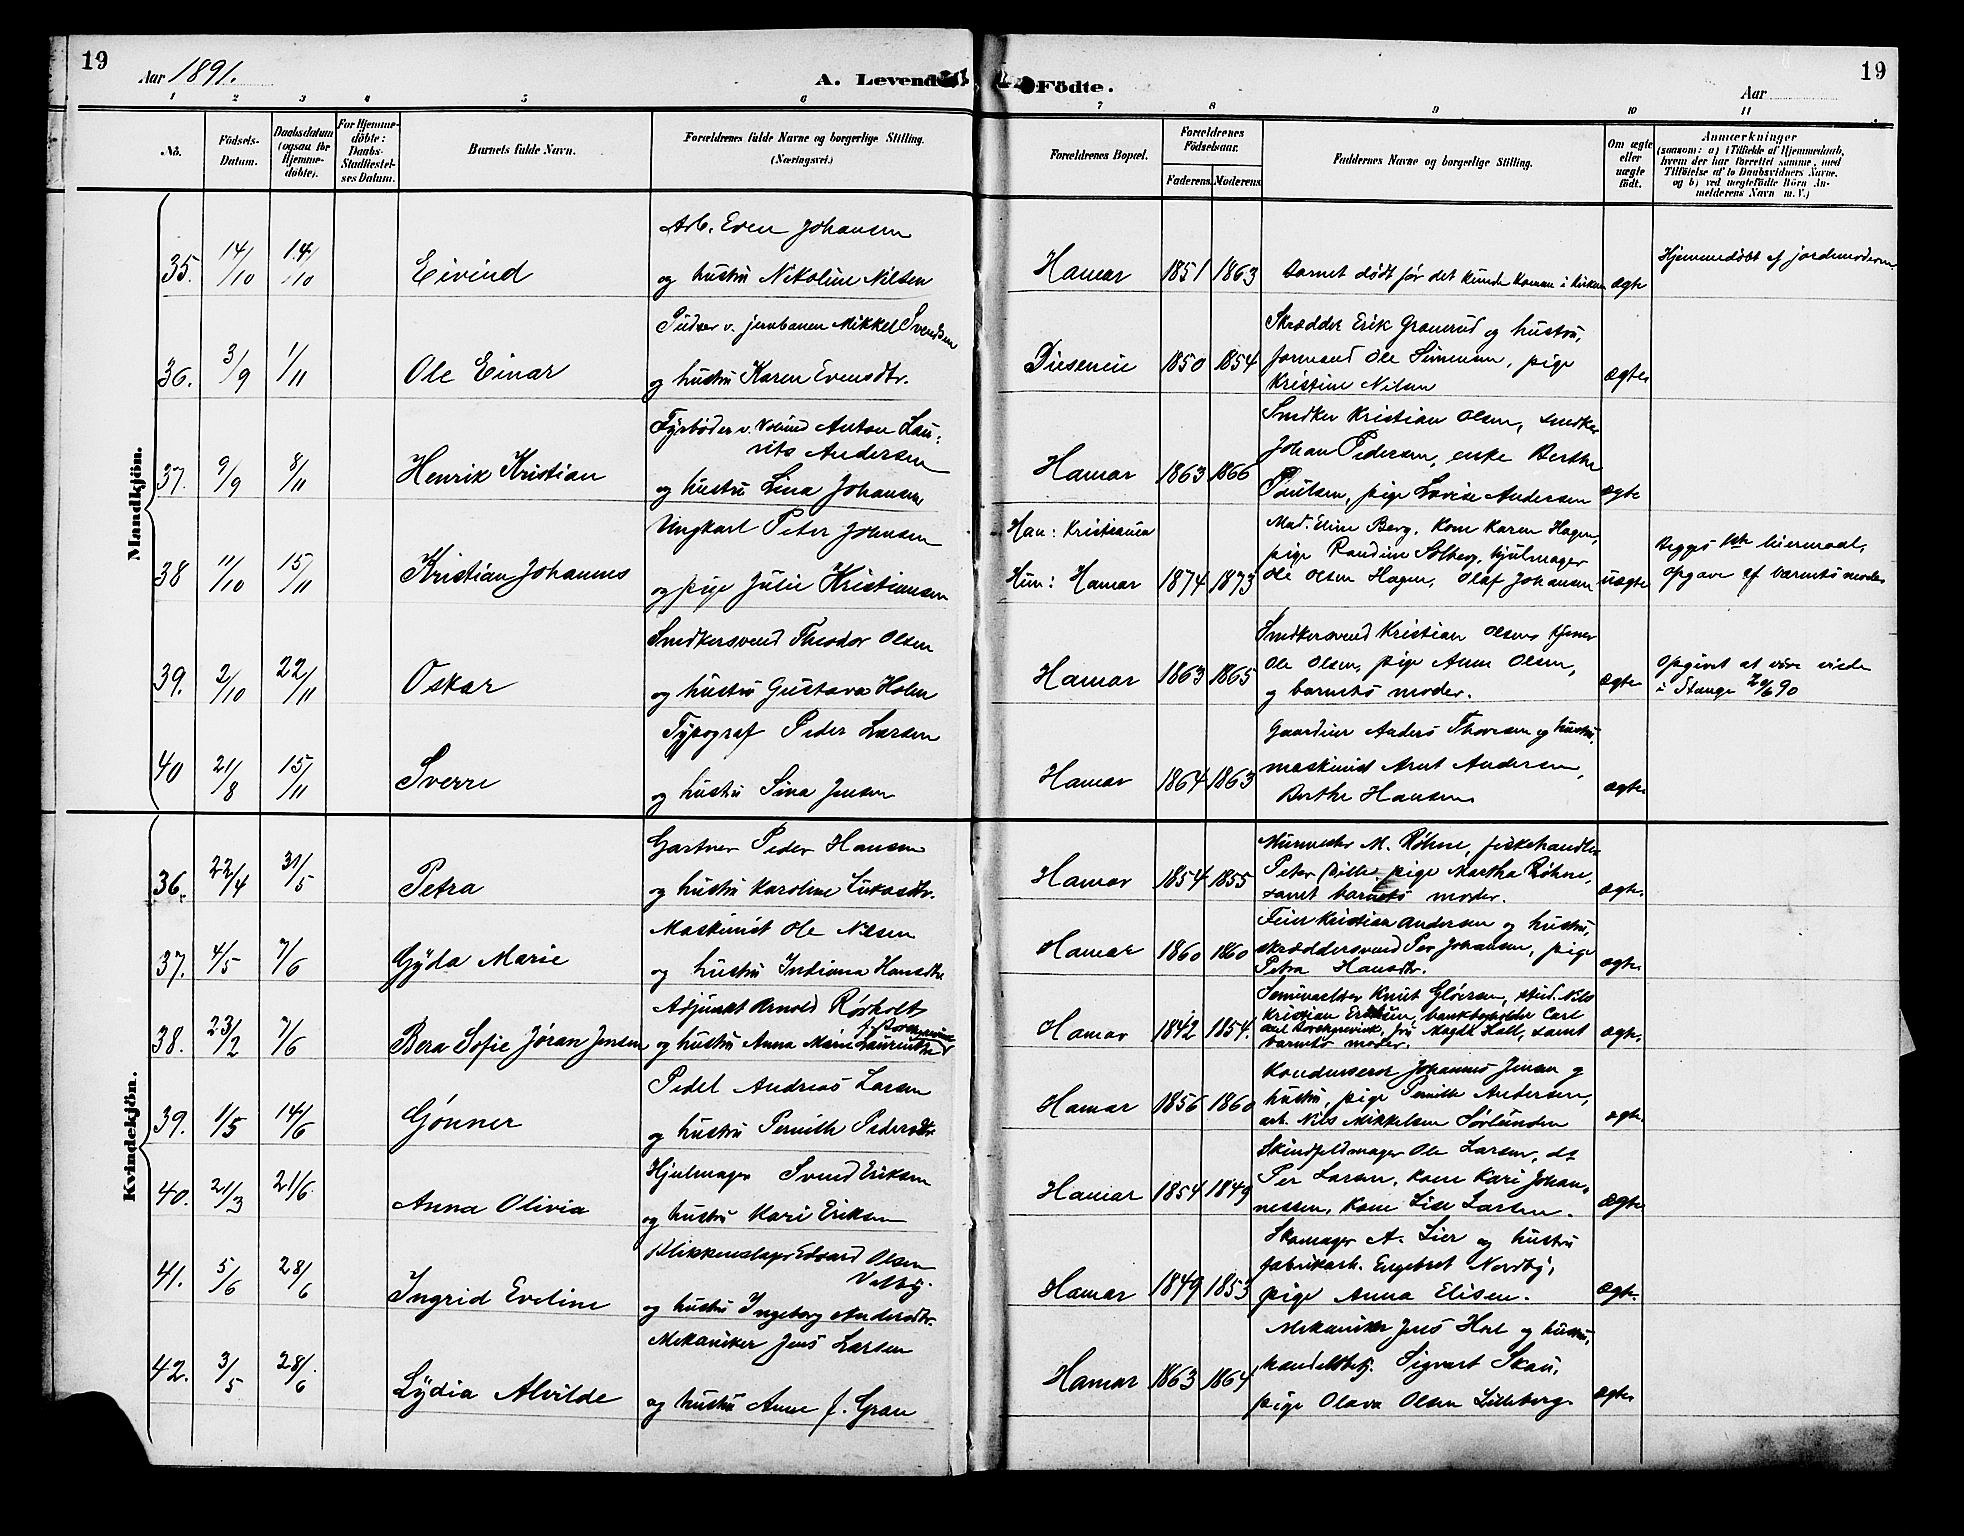 19
Aar 1891.
A. Levende Födte.
19
Aar
1 2 3 4 5 6 7 8 9 10 11
No.
Födsels-Datum.
Daabsdatum (ogsaa for Hjemmedöbte).
For Hjemmedöbte: Daabs-Stadfæstelses Datum.
Barnets fulde Navn.
Forældrenes fulde Navne og borgerlige Stilling. (Næringsvei.)
Forældrenes Bopæl.
Forældrenes Födselsaar.
Faderens. Moderens.
Faddernes Navne og borgerlige Stilling.
Om ægte eller uægte födt.
Anmærkninger
(saasom: a) i Tilfælde af Hjemmedaab, hvem der har forrettet samme, med Tilföielse af to Daabsvidners Navne, og b) ved uægtefödte Börn Anmelderens Navn m. V.)
Mandkjön.
Arb. Even Johansen
35. 14/10 14/10 Eivind og hustru Nikoline Nilsen Hamar 1851 1863 barnet dødt før det kunde komme i kirken ægte Hjemmedøbt af jordemoderen
Pudser v. jernbanen Mikkel Svendsen
Skrædder Erik Granerud og hustru,
formand Ole Simensen, pige
36. 3/9 1/11 Ole Einar og hustru Karen Evensdtr. Diseneie 1850 1854 Kristine Nilsen ægte
Fyrbøder v. Anton Lau-
rits Andersen
Snedker Kristian Olsen, snedker
Johan Pedersen, enke Berthe
37. 9/9 8/11 Henrik Kristian og hustru Lina Johansen Hamar 1863 1866 Paulsen, pige Lovise Andersen ægte
Ungkarl Peter Johnsen Han: Kristiania
Mad. Eline Berg, kone Karen Hagen,
pige Randine Solberg, hjulmager
38 11/10 15/11 Kristian Johannes og pige Julie Kristiansen Hun: Hamar 1874 1873 Ole Olsen Hagen, Olaf Johansen uægte Begges 1ste leiermaal, opgave af barnets moder
Snedkersvend Theodor Olsen
Snedkersvend Kristian Olsen,
Ole Olsen, pige Anne Olsen,
39. 2/10 22/11 Oskar og hustru Gustava Holm Hamar 1863 1865 og barnets moder. ægte Opgivet at være viede i Stange 20/6 90
Typograf Peder Larsen
Gaardeier Anders Thoresen og hustru,
maskinist Arnt Andersen,
40 21/8 15/11 Sverre og hustru Sina Jensen Hamar 1864 1863 Berthe Hansen ægte
Kvindekjön.
Gartner Peder Hansen
Murmester M. Røhne, fiskehandler
Peter Lille, pige Martha Røhne,
36. 22/4 31/5 Petra og hustru Karoline Lukasdtr. Hamar 1854 1855 samt barnets moder. ægte
Maskinist Ole Nilsen
Feier Kristian Andersen og hustru,
skræddersvend Per Johansen, pige
37. 4/5 7/6 Gyda Marie og hustru Indiana Hansdtr. Hamar 1860 1860 Petra Hansdtr. ægte
Adjunkt Arnold Rørholt
Seminarlder Knut Gløersen, stud. Nils
Kristian Erichsen, bankbogholder Carl
Borchgrevink, fru Magda Hall, samt
38. 23/2 7/6 Bera Sofie Jøran Jensen og hustru Anna Marie Laurentze f. Borchgrevink Hamar 1842 1854 barnets moder. ægte
Pedel Andreas Larsen
Konduktør Johannes Jensen og
hustru, pige Pernille Andersen,
39. 1/5 14/6 Gønner og hustru Pernille Pedersdtr. Hamar 1856 1860 arb. Nils Mikkelsen Sørlunden ægte
Hjulmager Svend Eriksen
Skindfeldmager Ole Larsen, do
Per Larsen, kone Kari Johan-
40. 21/3 21/6 Anna Olivia og hustru Kari Eriksen Hamar 1854 1849 nessen, kone Lise Larsen. ægte
Blikkenslager Edvard Olsen
Velby
Skomager A. Lier og hustru
fabrikarb. Engebret Nordby,
41. 5/6 28/6 Ingrid Eveline og hustru Ingeborg Andersdtr. Hamar 1849 1853 pige Anna Elisen. ægte
Mekaniker Jens Larsen
Mekaniker Jens Hoel og hustru,
handelsbetj. Sigvart Skau,
42. 3/5 28/6 Lydia Alvilde og hustru Anne f. Gran Hamar 1863 1864 pige Olava Olsen Lilleberg ægte